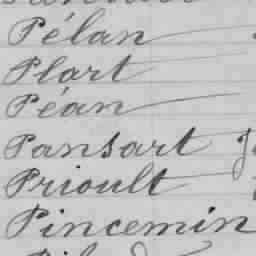 Pélan
Plart
Péan
Pansart
Prioult
Pincemin